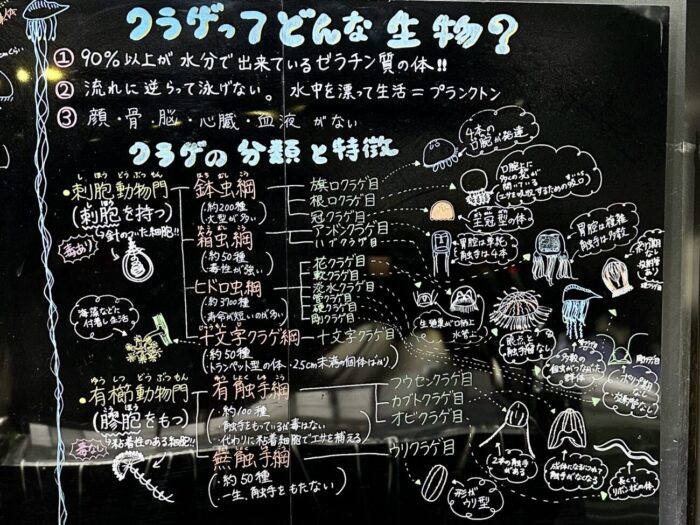 クラゲってどんな生物?
① 90%以上が水分で出来ているゼラチン質の体!!
② 流れに逆らって泳げない。 水中を漂って生活=プランクトン
③ 顔・骨・脳・心臓・血液 がない
クラゲの分類と特徴
しほうどうぶつもん
・刺胞動物門
(刺胞を持つ)
針のついた細胞!!
毒あり
はちむしこう
鉢虫綱
(・約200種
・大型が多い)
旗口クラゲ目
根口クラゲ目
冠クラゲ目
箱虫綱
(・約50種
・毒性が強い)
アンドンクラゲ目
ヒドロ虫綱
(・約3700種
・寿命が短いのが多い)
花クラゲ目
軟クラゲ目
淡水クラゲ目
管クラゲ目
硬クラゲ目
剛クラゲ目
海藻などに
付着し生活
十文字クラゲ綱
(・約50種
・トランペット型の体・2.5cm未満の個体ばかり)
十文字クラゲ目
ゆうしつどうぶつもん
・有櫛動物門
(膠胞をもつ)
粘着性のある細胞!!
毒なし
ゆうしょくしゅこう
有触手綱
(・約100種
・触手をもっているが毒はない
・代わりに粘着細胞でエサを捕える)
フウセンクラゲ目
カブトクラゲ目
オビクラゲ目
無触手綱
(・約50種
・一生、触手をもたない)
ウリクラゲ目
4本の
口腕が発達
口腕上に
王冠型の体
胃腔は単純
触手は4本
胃腔は複雑
触手は多数
眼点と
触手瘤なし
多数の
個虫がつながった
群体
2本の触手
がある
成体になるにつれて
触手がなくなる
長くて
リボン状の体
形が
ウリ型